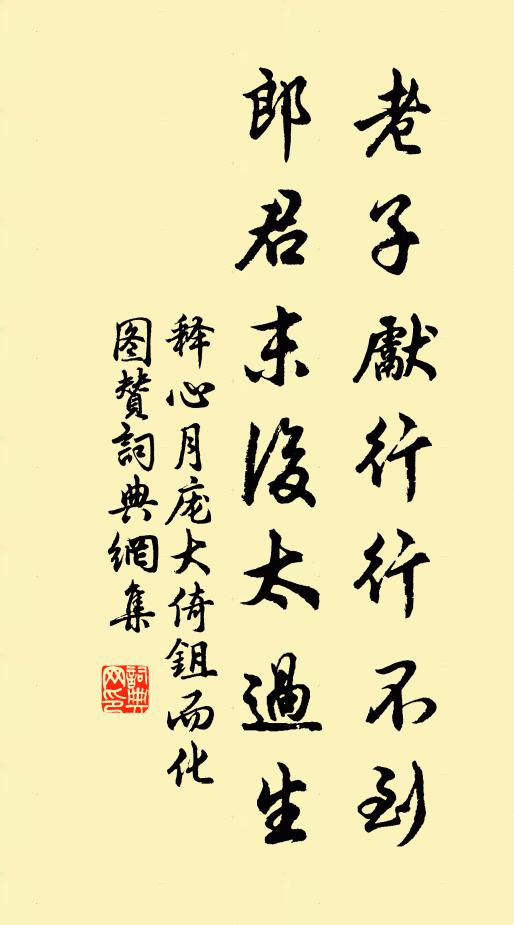 老子獻行行不到
郎君末後太過生
释心月庞大倚鉏而化
图赞詞典網集
詞典
网印